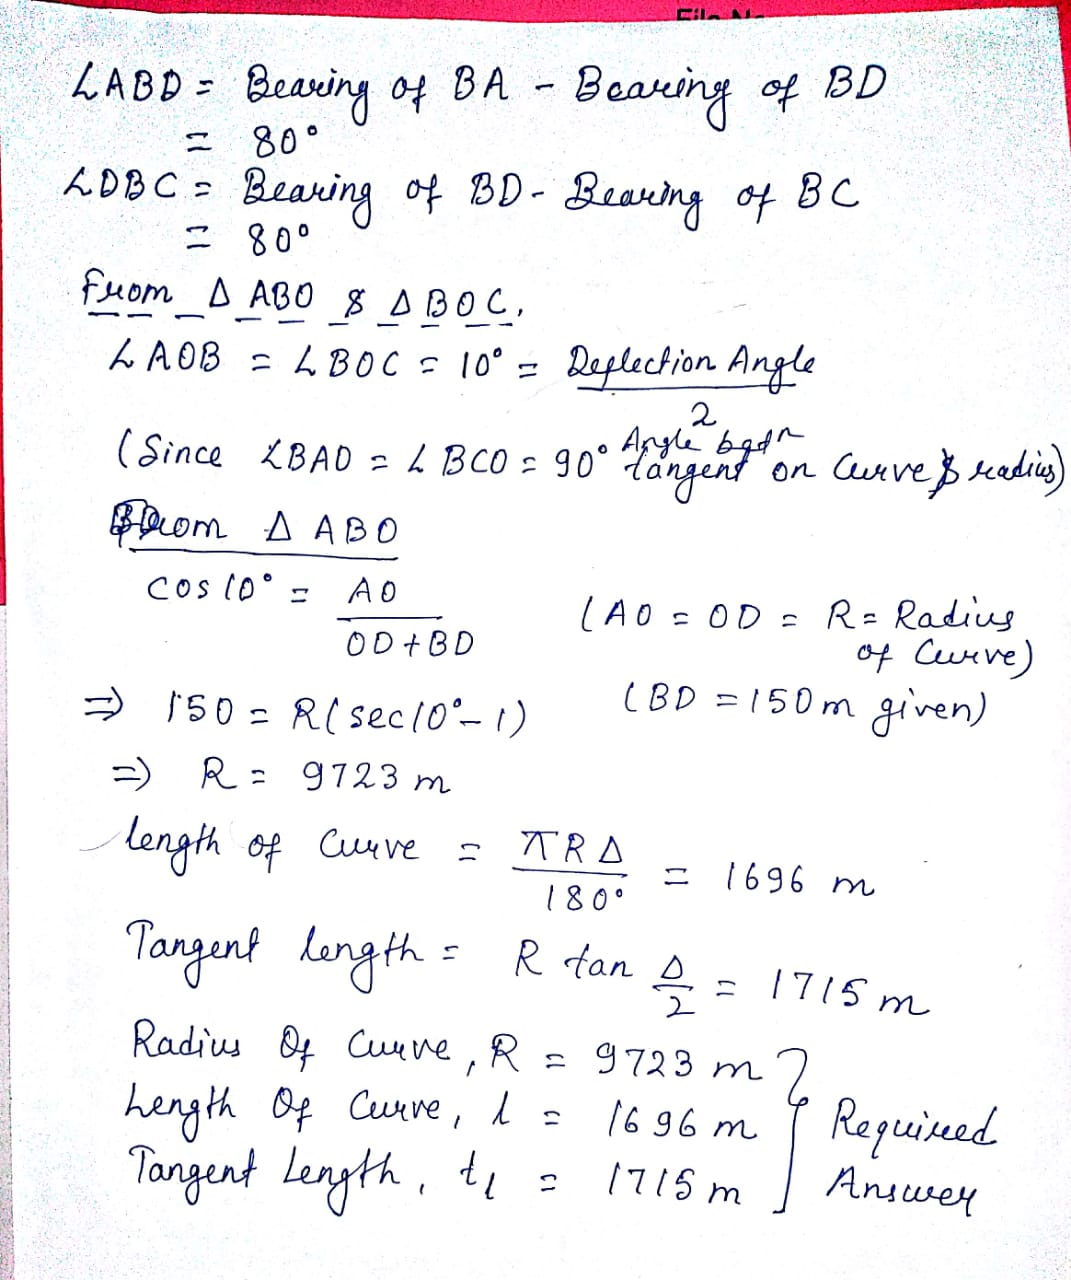 ∠ABD = Bearing of BA - Bearing of BD
= 80°
∠DBC = Bearing of BD - Bearing of BC
= 80°
From Δ ABO & Δ BOC,
∠AOB = ∠BOC = 10° = Deflection Angle / 2
(Since ∠BAO = ∠BCO = 90° Angle b/w tangent on Curve & radius)
From Δ ABO
cos 10° = AO / OD + BD
(AO = OD = R = Radius
of Curve)
⇒ 150 = R(sec10° - 1)
(BD = 150m given)
⇒ R = 9723 m
length of Curve = πRΔ / 180° = 1696 m
Tangent length = R tan Δ/2 = 1715 m
Radius Of Curve, R = 9723 m
Length Of Curve, l = 1696 m } Required
Tangent Length, tl = 1715 m Answer